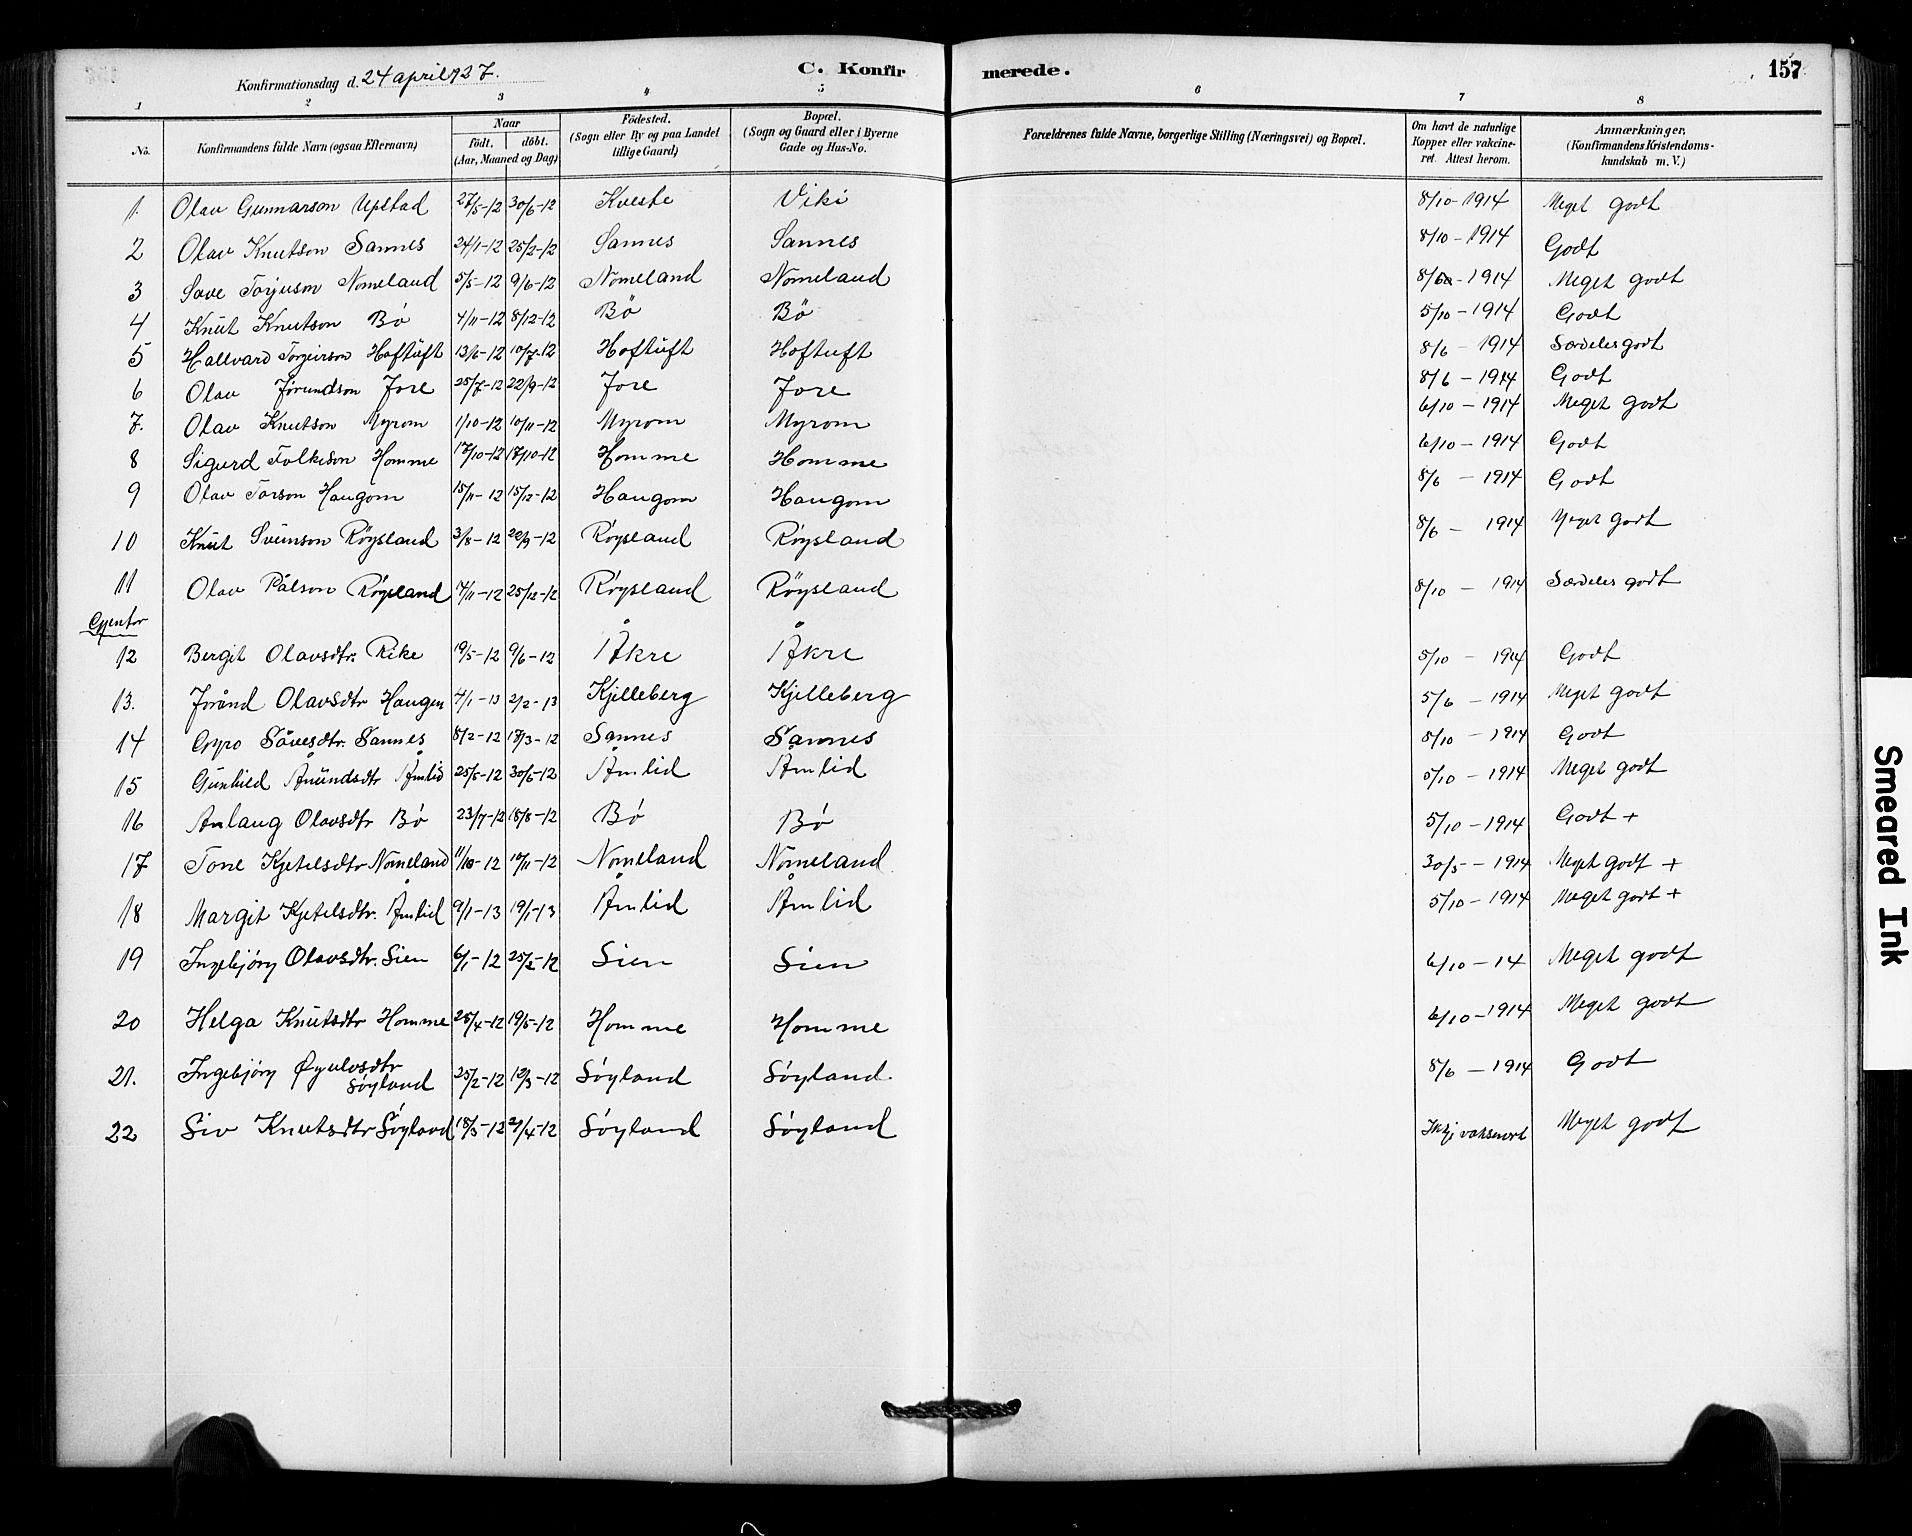 Konfirmationsdag d. 24 april 1927. C. Konfirmerede. 157
1 2 3 4 5 6 7 8
No. Konfirmandens fulde Navn (ogsaa Efternavn) Naar født. døbt. (Aar, Maaned og Dag) Fødested. (Sogn eller By og paa Landet tillige Gaard) Bopæl. (Sogn og Gaard eller i Byerne Gade og Hus-No. Forældrenes fulde Navne, borgerlige Stilling (Næringsvei) og Bopæl. Om havt de naturlige Kopper eller vakcineret. Attest herom. Anmærkninger, (Konfirmandens Kristendomskundskab m. V.)
1. Olav Gunnarson Upstad 27/5-12 30/6-12 Kveste Viki 8/10-1914 Meget godt
2 Olav Knutson Sannes 24/1-12 25/2-12 Sannes Sannes 8/10-1914 Godt
3 Save Torjuson Nomeland 5/5-12 9/6-12 Nomeland Nomeland 1914 Meget godt
4 Knut Knutson Bö 4/11-12 8/12-12 Bö Bö 5/10-1914 Godt
5 Hallvard Torgeirson Hoftuft 13/6-12 10/7-12 Hoftuft Hoftuft 8/6-1914 Særdeles godt
6 Olav Jørundson Jore 25/7-12 22/9-12 Jore Jore 8/6-1914 Godt
7. Olav Knutson Myrom 1/10-12 10/11-12 Myrom Myrom 6/10-1914 Meget godt
8 Sigurd Folkeson Homme 17/10-12 Homme Homme 6/10-1914 Godt
9 Olav Torson Haugom 15/11-12 15/12-12 Haugom Haugom 8/6-1914 Godt
10 Knut Sveinson Röysland 3/8-12 22/9-12 Röysland Röysland 8/6-1914 Meget godt
11 Olav Pålson Röysland 4/11-12 25/12-12 Röysland Röysland 8/10-1914 Særdeles godt
Gjentor
12 Bergit Olavsdtr. Rike 19/5-12 9/6-12 Åkre Åkre 5/10-1914 Godt
13. Jorånd Olavsdtr Haugen 4/1-13 2/2-13 Kjelleberg Kjelleberg 5/6-1914 Meget godt
14 Gyro Såvesdtr. Sannes 8/2-12 17/3-12 Sannes Sannes 5/10-1914 Godt
15 Gunhild Ånundsdtr Åmlid 25/5-12 30/6-12 Åmlid Åmlid 5/10-1914 Meget godt
16 Anlaug Olavsdtr Bö 23/7-12 18/8-12 Bö Bö 5/10-1914 Godt +
17 Tone Kjetelsdtr Nomeland 11/10-12 10/11-12 Nomeland Nomeland 30/5-1914 Meget godt +
18 Margit Kjetelsdtr. Åmlid 9/1-13 19/1-13 Åmlid Åmlid 5/10-1914 Meget godt +
19 Ingebjörg Olavsdtr. Sien 6/1-12 25/2-12 Sien Sien 6/10-14 Meget godt
20 Helga Knutsdtr Homme 25/4-12 19/5-12 Homme Homme 6/10-1914 Meget godt
21. Ingebjörg Øyulvsdtr Söyland 25/2-12 10/3-12 Söyland Söyland. 8/6-1914 Godt
22 Siv Knutsdtr Söyland 18/3-12 21/4-12 Söyland Söyland Ikkje vaksinert Meget godt
Smeared Ink